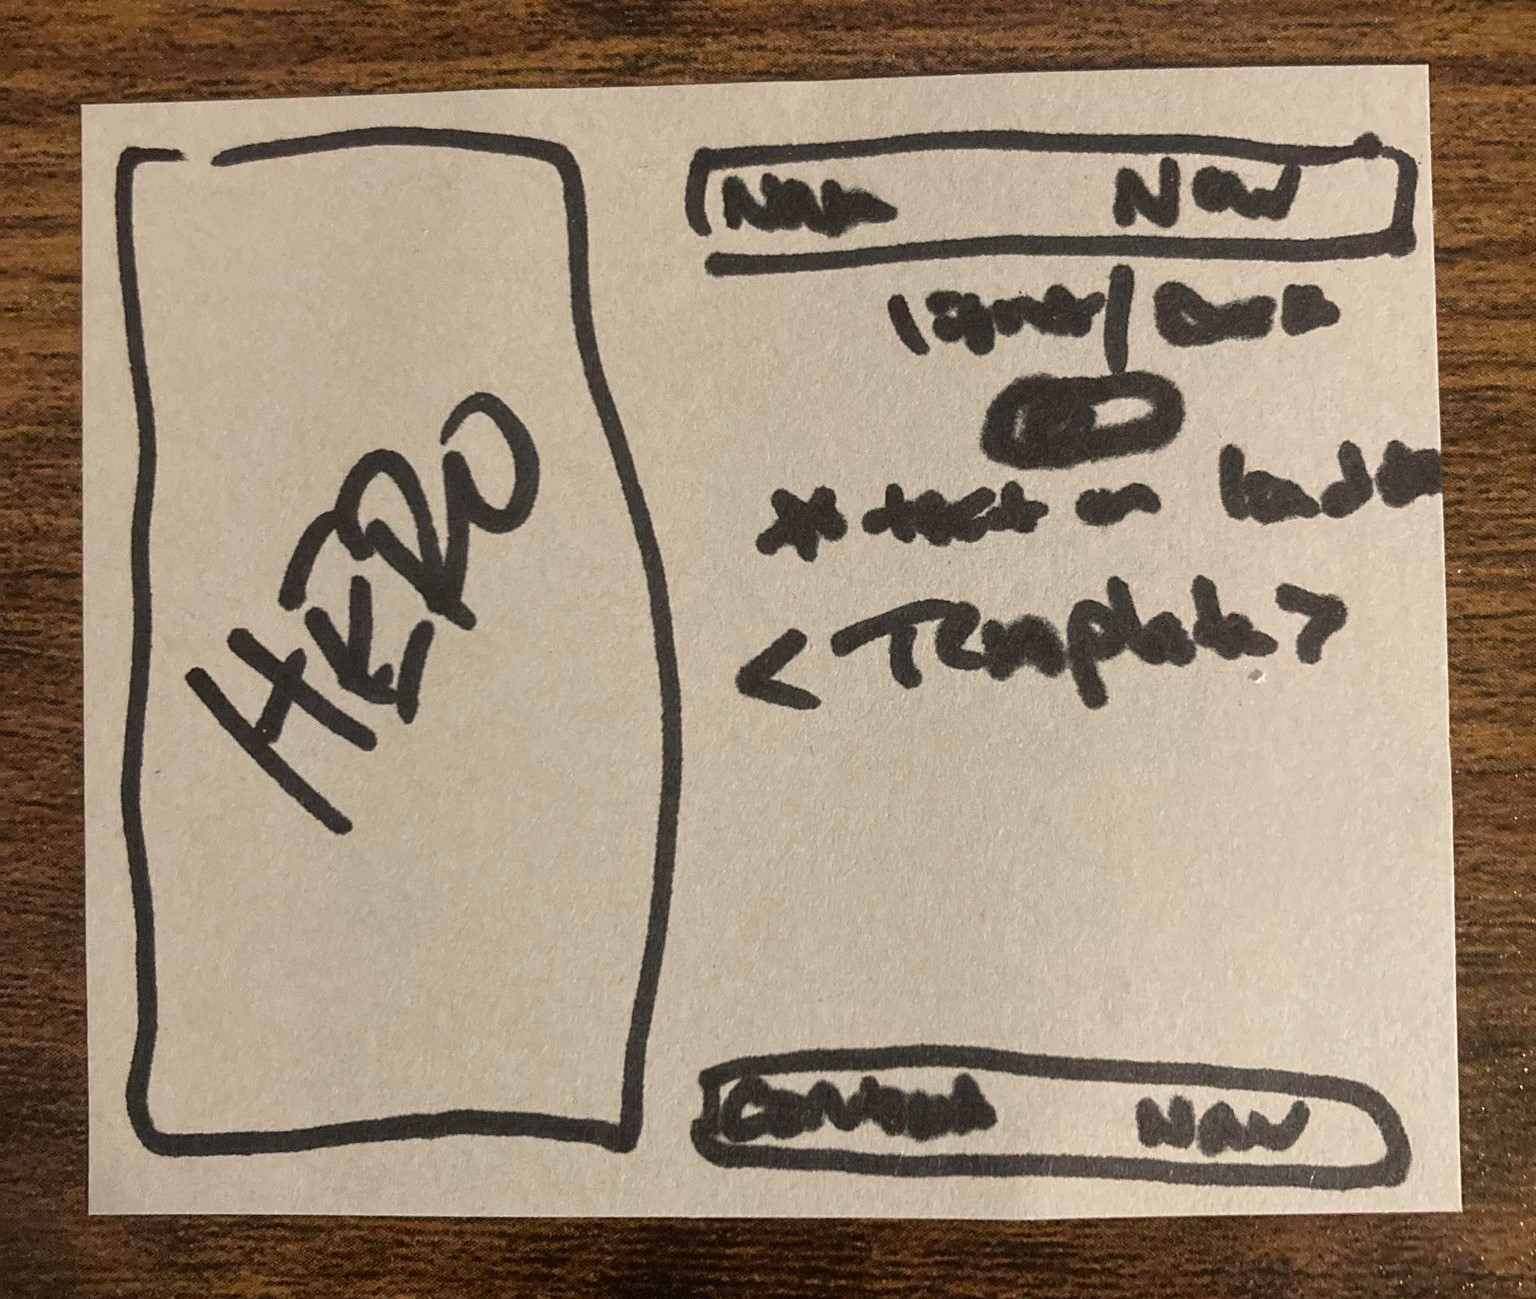 HERO
Name Nav
light/Dark
* text on
<Template>
Content Nav